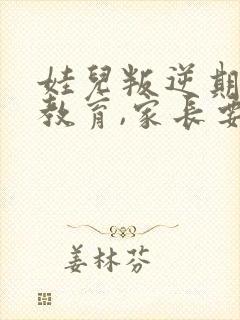 娃兒叛逆期
教育,家長要
姜林芬